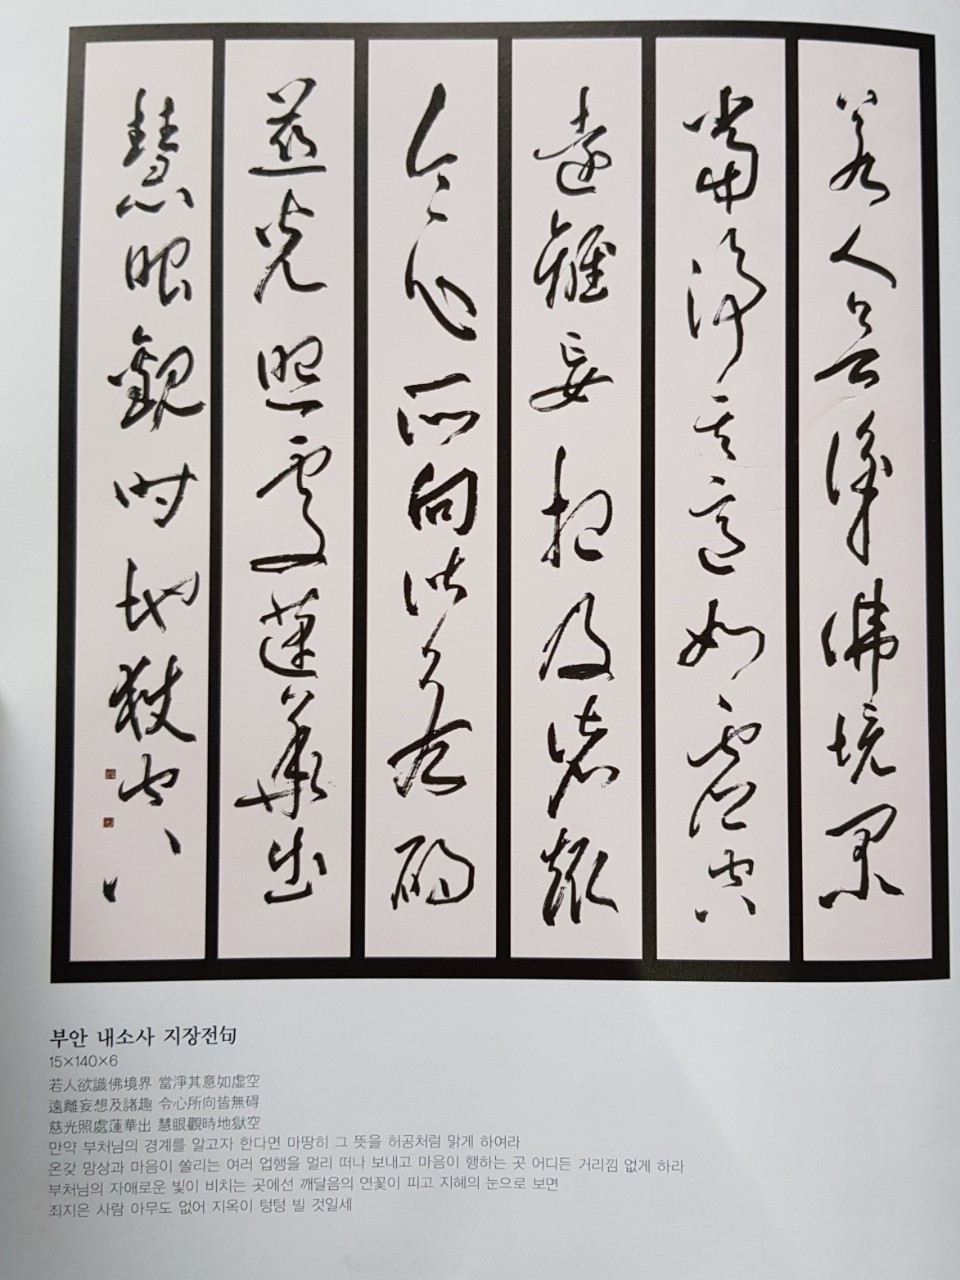 若人欲識佛境界
當淨其意如虛空
遠離妄想及諸趣
令心所向皆無碍
慈光照處蓮華出
慧眼觀時地獄空
부안 내소사 지장전句
15×140×6
若人欲識佛境界 當淨其意如虛空
遠離妄想及諸趣 令心所向皆無碍
慈光照處蓮華出 慧眼觀時地獄空
만약 부처님의 경계를 알고자 한다면 마땅히 그 뜻을 허공처럼 맑게 하여라
온갖 망상과 마음이 쏠리는 여러 업행을 멀리 떠나 보내고 마음이 행하는 곳 어디든 거리낌 없게 하라
부처님의 자애로운 빛이 비치는 곳에선 깨달음의 연꽃이 피고 지혜의 눈으로 보면
죄지은 사람 아무도 없어 지옥이 텅텅 빌 것일세